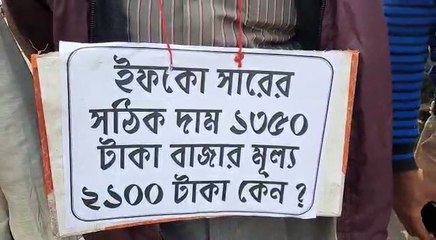 ইফকো সারের
সঠিক দাম ১৩৫০
টাকা বাজার মূল্য
২১০০ টাকা কেন ?